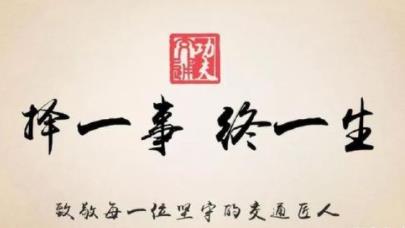 功夫交通
择一事 终一生
致敬每一位坚守的交通匠人